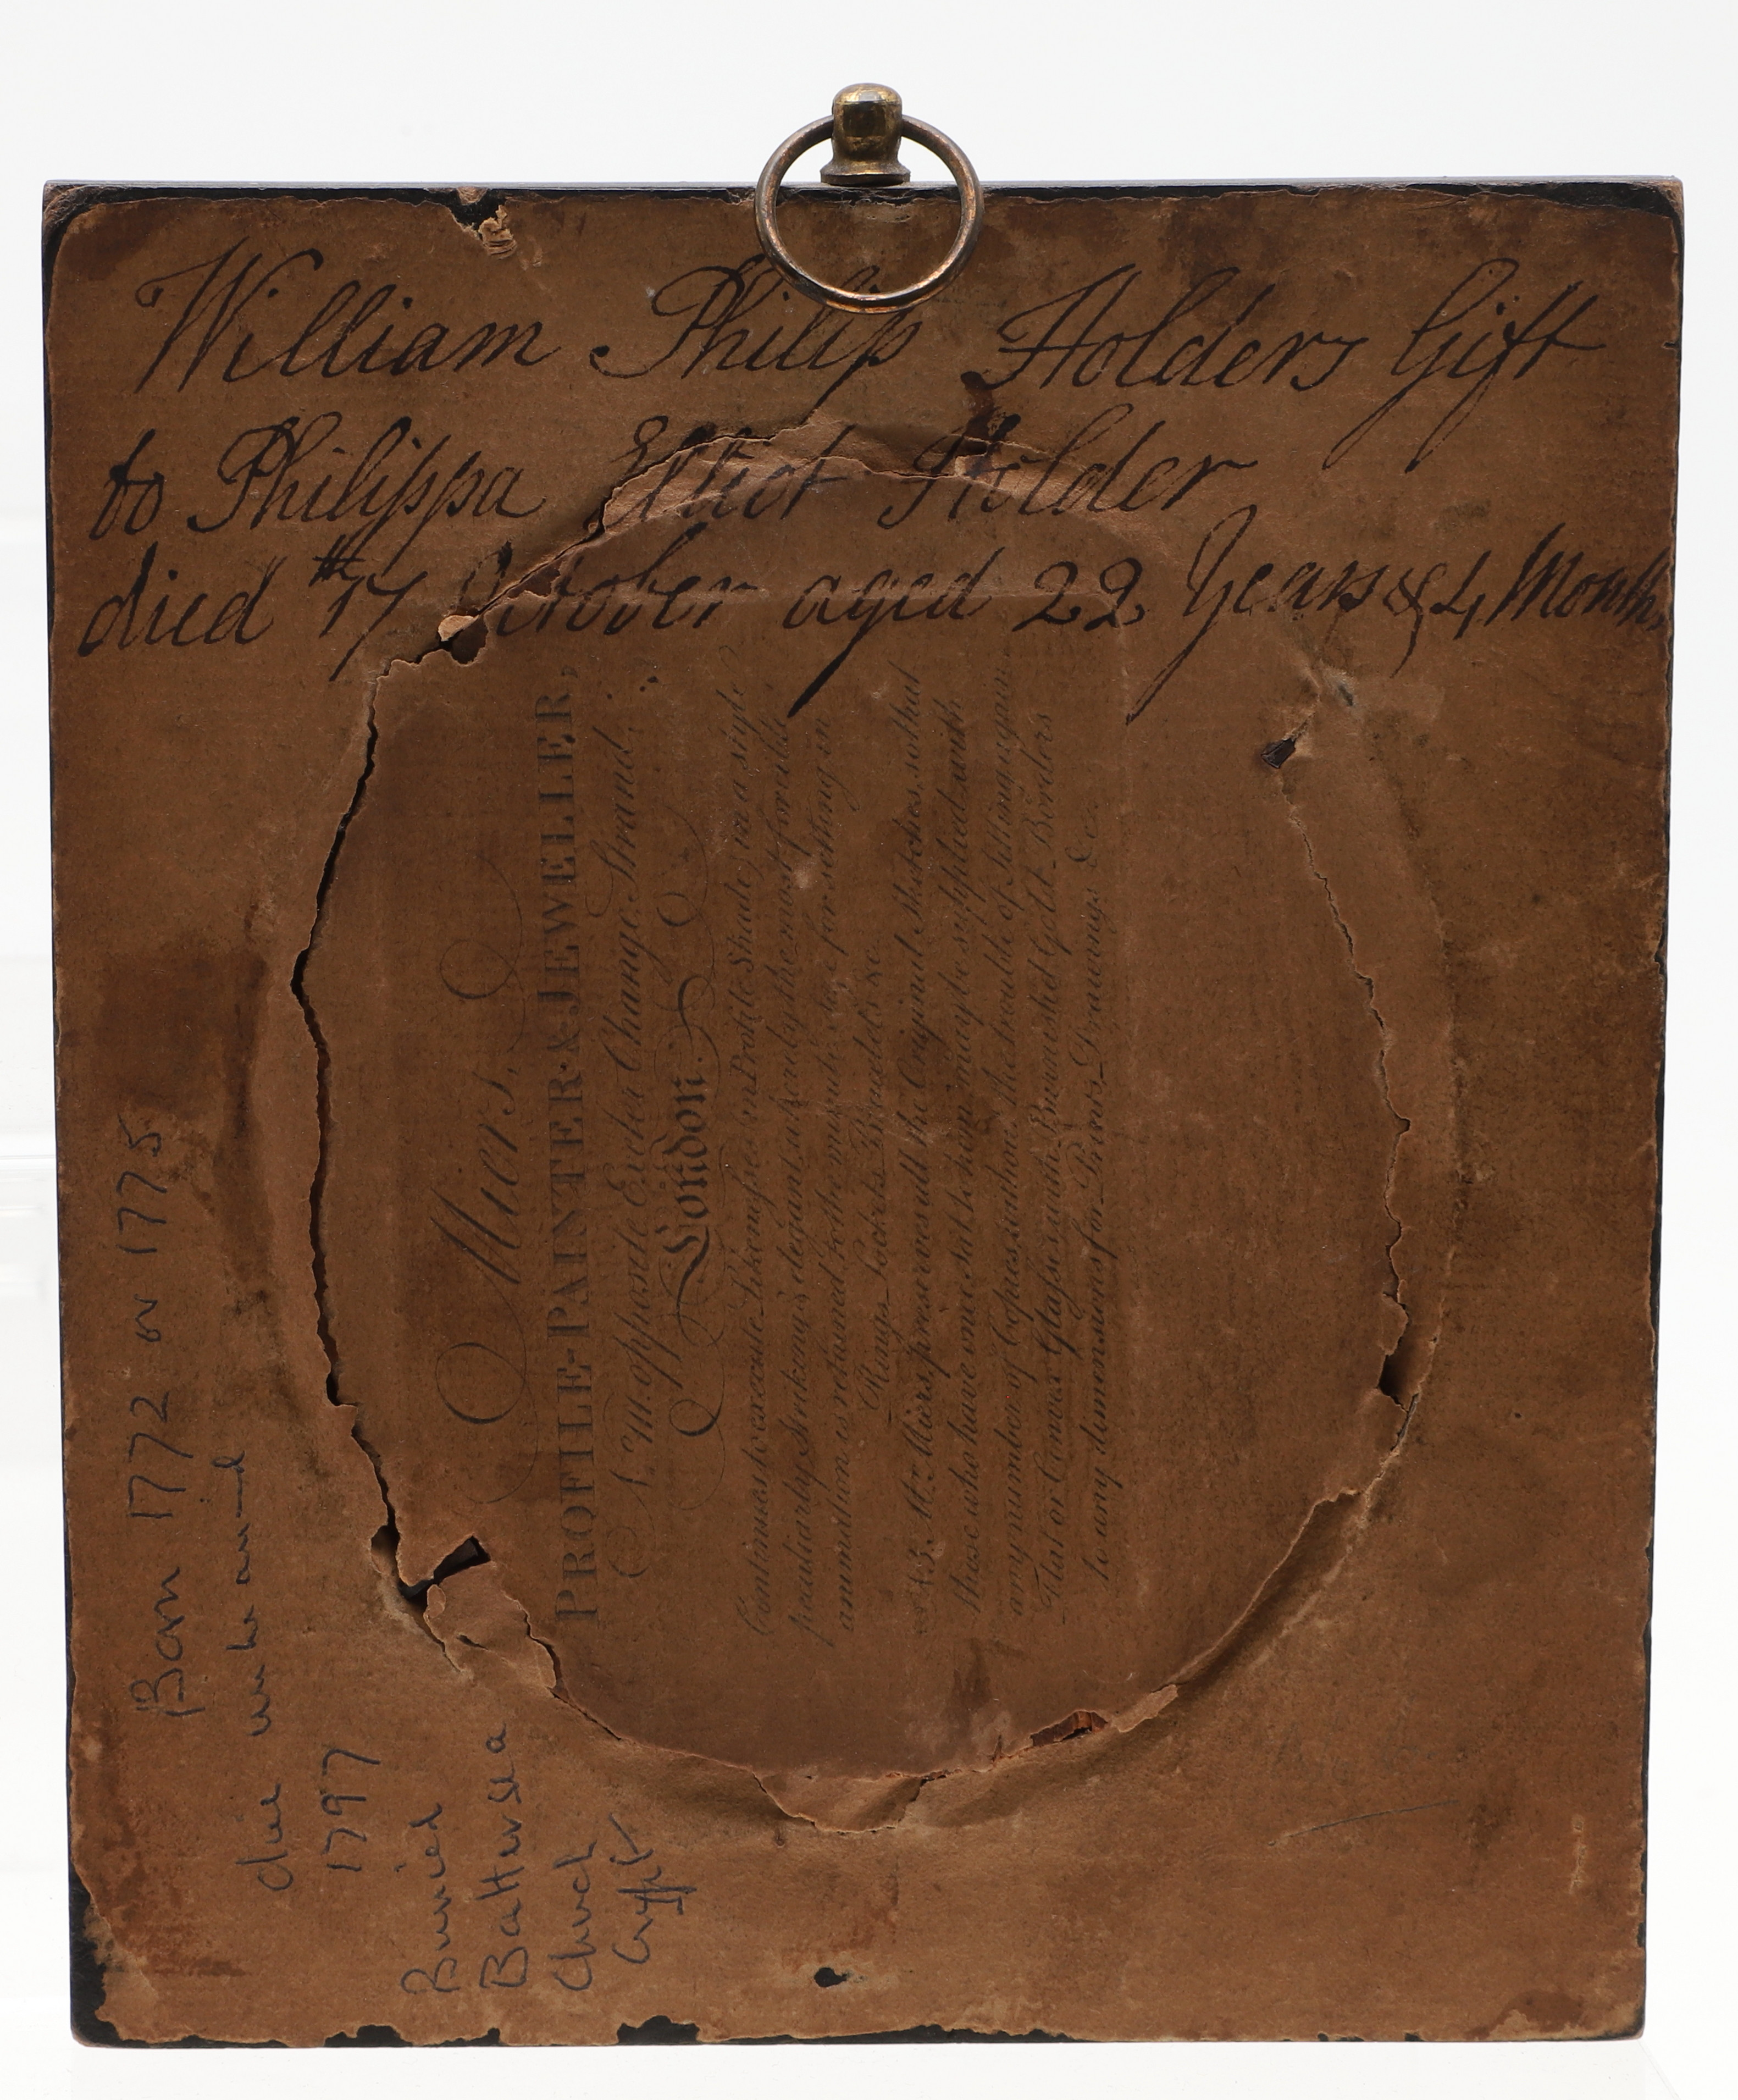 William Philip Holders Gift
to Philippa Elliot Holder
died 17th October aged 22 Years & 4 Months
Miers,
PROFILE-PAINTER & JEWELLER,
N.º 111. opposite Exeter Change, Strand.
London.
Continues to execute Likenesses in Profile Shade, in a style
peculiarly striking & elegant, whereby the most forcible
animation is retained to the minute size for setting in
Rings, Lockets, Bracelets &c.
N.B. Mr. Miers preserves all the Original Sketches, so that
those who have once Sat to him may be supplied with
any number of Copies without the trouble of Sitting again.
Flat or Convex Glasses with Burnished Gold Borders
to any dimensions for Prints, Drawings, &c.
Born 1772 or 1775
die unmarried
1797
Buried
Battersea
Church
Crypt